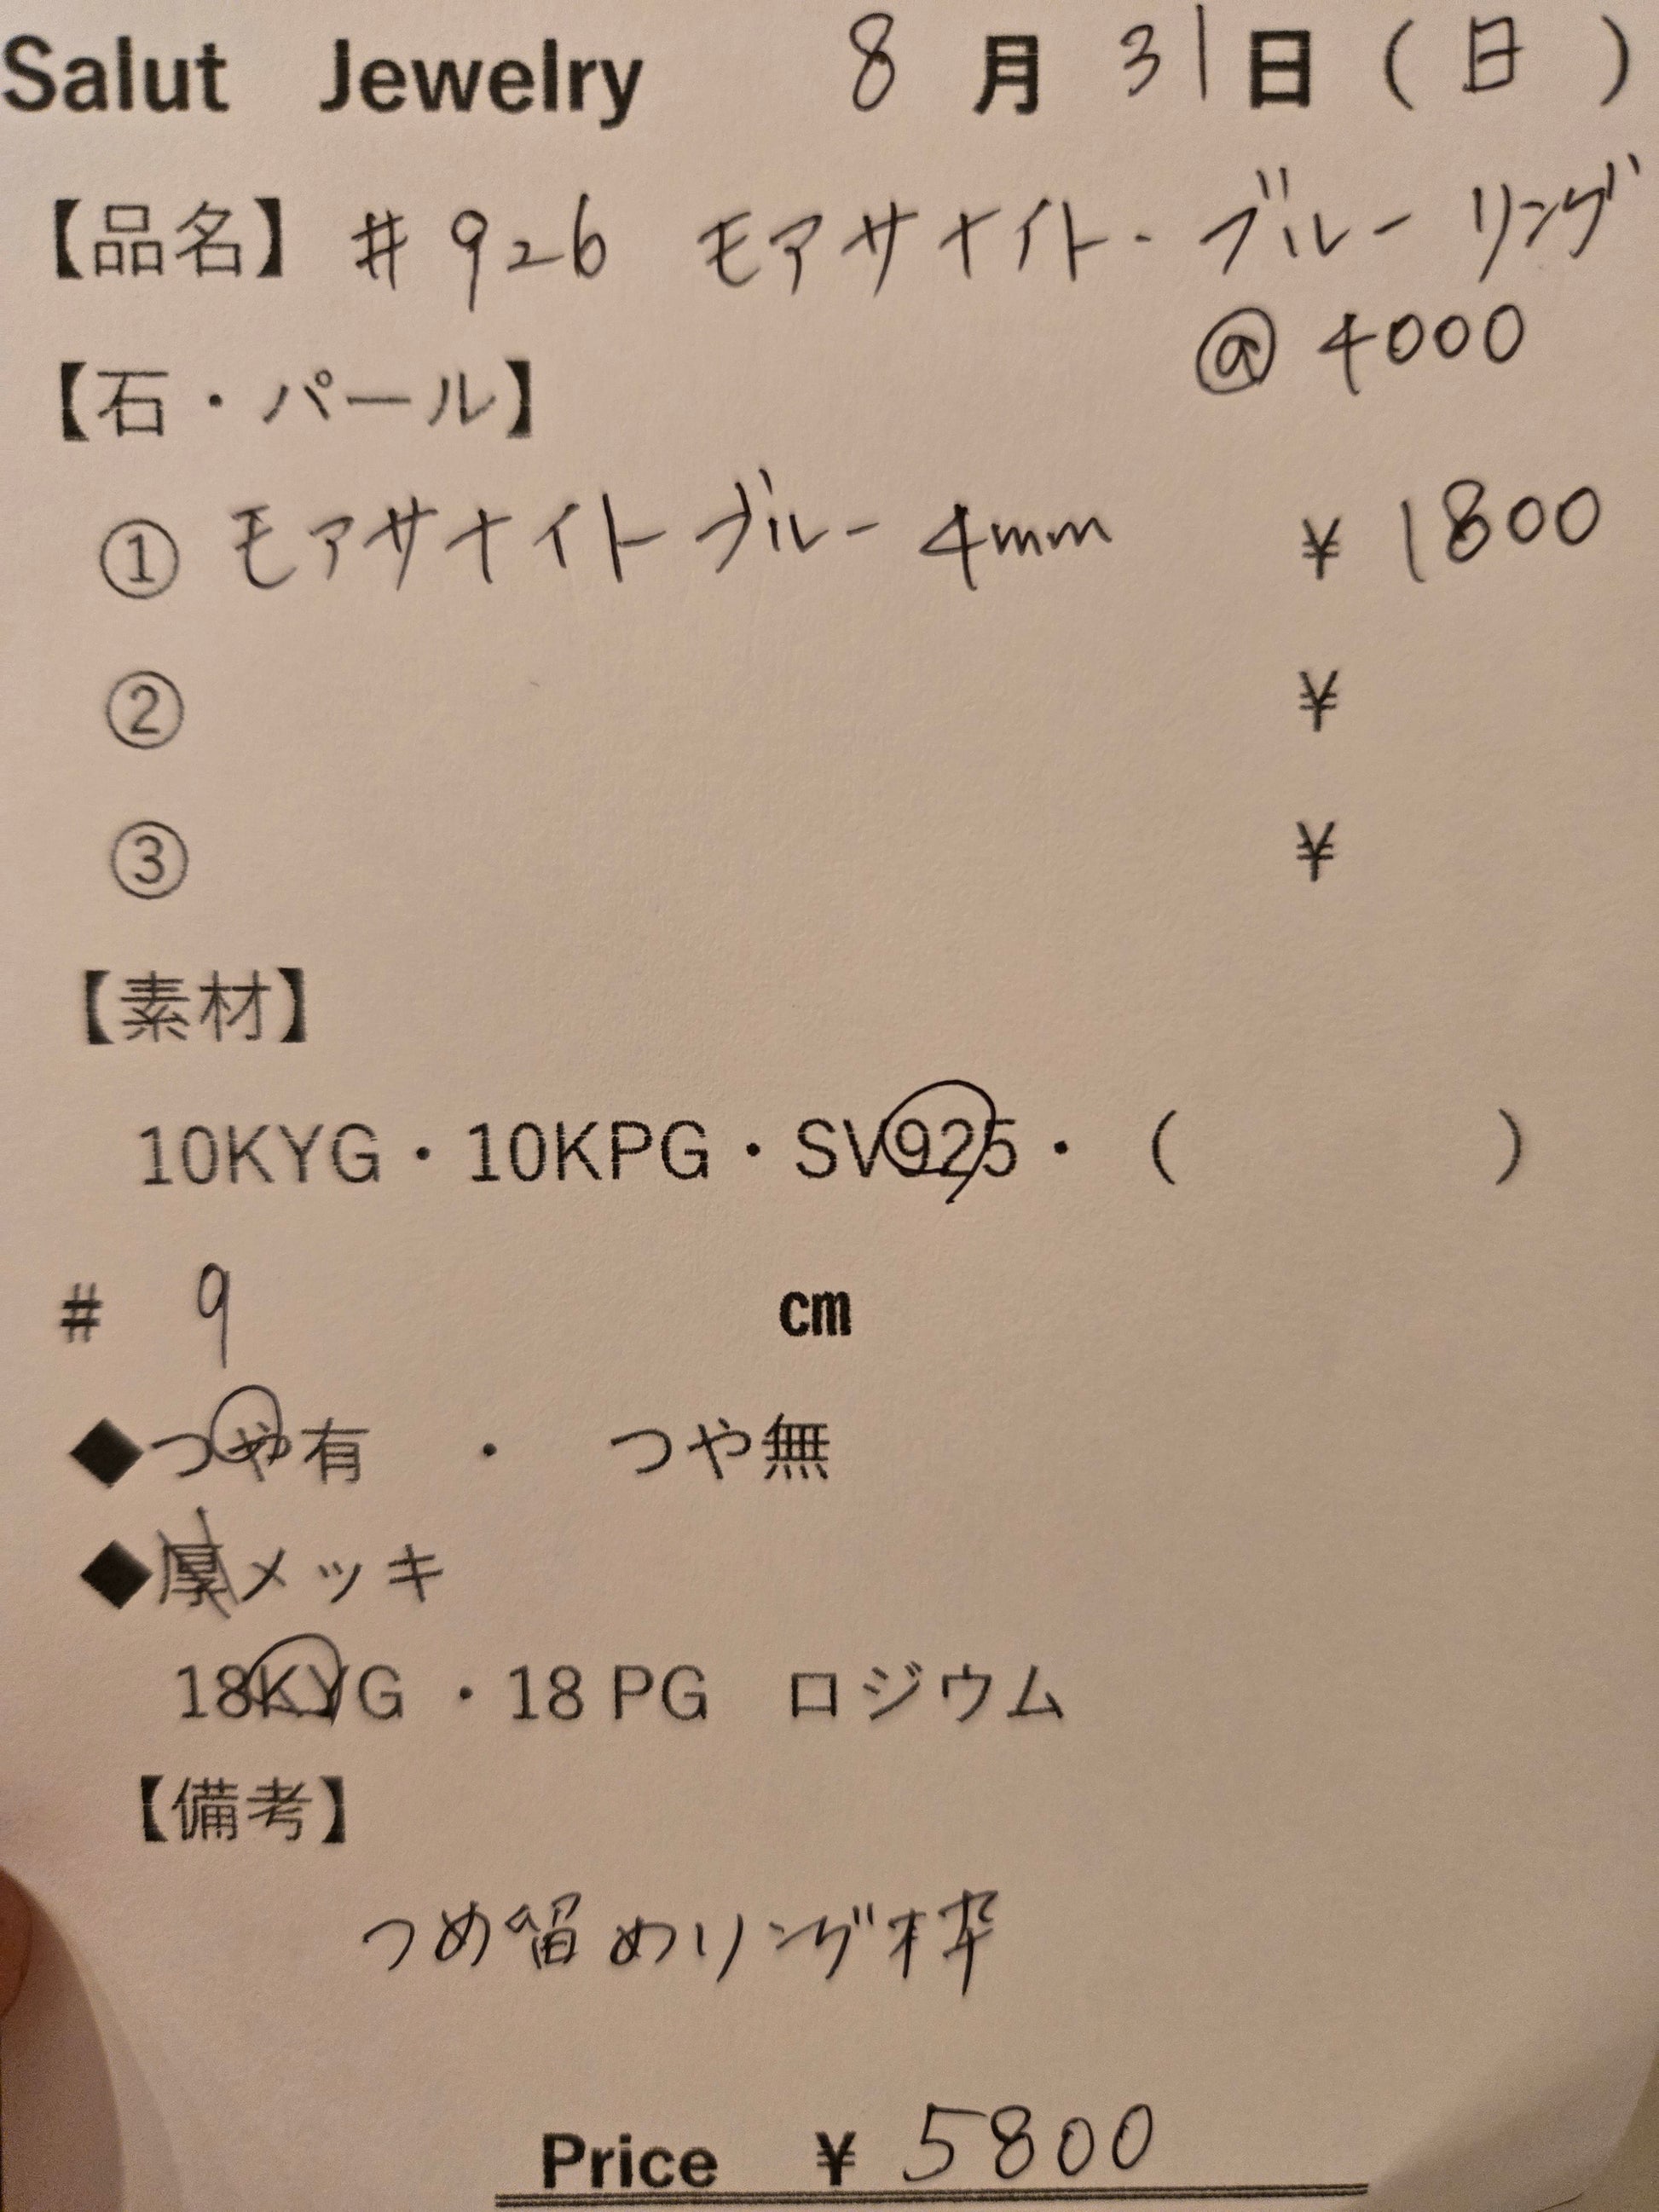 Salut Jewelry 8月31日(日)
【品名】 #926 モアサナイト・ブルー リング
@4000
【石・パール】
① モアサナイト ブルー 4mm ¥1800
② ¥
③ ¥
【素材】
10KYG・10KPG・SV925・( )
# 9 cm
◆つや有 ・ つや無
◆厚メッキ
18KYG ・18 PG ロジウム
【備考】
つめ留めリング枠
Price ¥ 5800